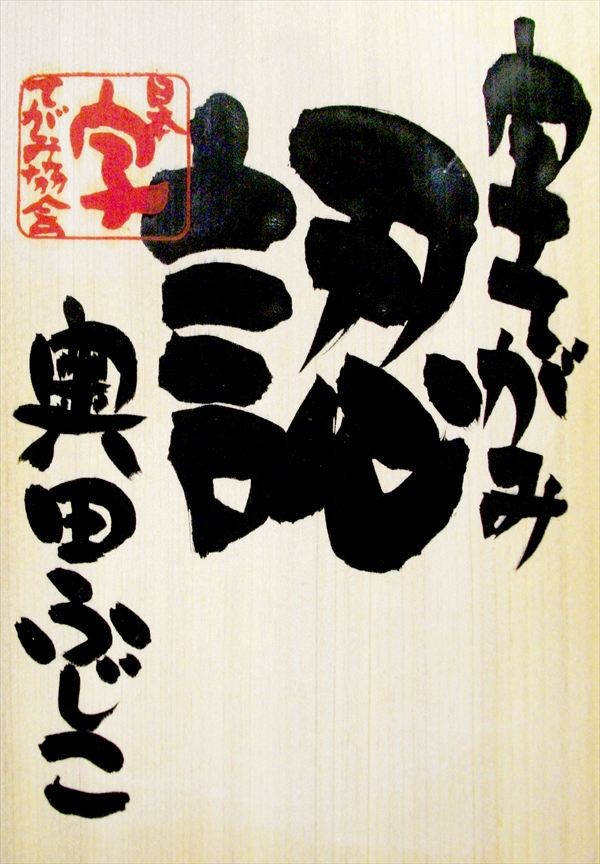 字てがみ
認
日本
字
てがみ協会
奥田ふじこ